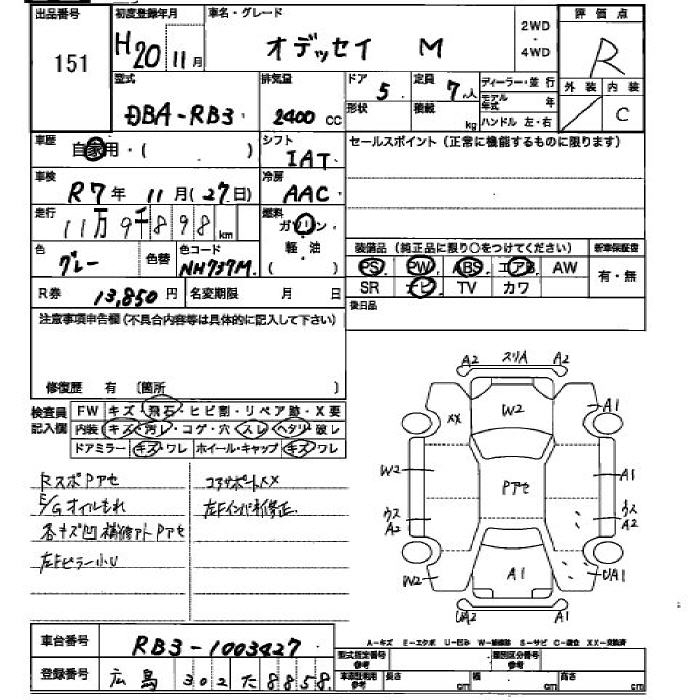 出品番号 初度登録年月 車名・グレード 2WD・4WD 評価点
151 H20 11月 オデッセイ M R
型式 排気量 ドア 定員 ディーラー・並行 外装 内装
DBA-RB3 2400 CC 5 7人 モデル年式 年 C
形状 積載 kg ハンドル 左・右
車歴 自家用・( ) シフト IAT セールスポイント (正常に機能するものに限ります)
車検 R7年 11月(27日) 冷房 AAC
走行 11万9千898km 燃料 ガソリン・軽油 ( )
色 グレー 色替 色コード NH737M 装備品 (純正品に限り○をつけてください) 新車保証書
PS PW ABS エアB AW 有・無
R券 13,850円 名変期限 月 日 SR ナビ TV カワ
後日品
注意事項申告欄(不具合内容等は具体的に記入して下さい)
修復歴 有 (箇所 )
検査員記入欄 FW キズ・飛石・ヒビ割・リペア跡・X要
内装 キズ・汚レ・コゲ・穴・スレ・ヘタリ・破レ
ドアミラー キズ・ワレ ホイール・キャップ キズ・ワレ
RスポPアセ コアサポートXX
E/Gオイルもれ 左Fインパネ修正
各キズ凹補修アトPアセ
左Fピラー小U
A2 スリA A2
XX W2 A1
W2 Pアセ A1
ウスA2 ウスA2
W2 A1 UA1
UA2 A2
A-キズ E-エクボ U-凹み W-補修跡 S-サビ C-腐食 XX-交換済
車台番号 RB3-1003427 型式指定番号 参考 類別区分番号 参考
登録番号 広島 302 た 8858 車庫証明用 参考 長さ cm 幅 cm 高さ cm